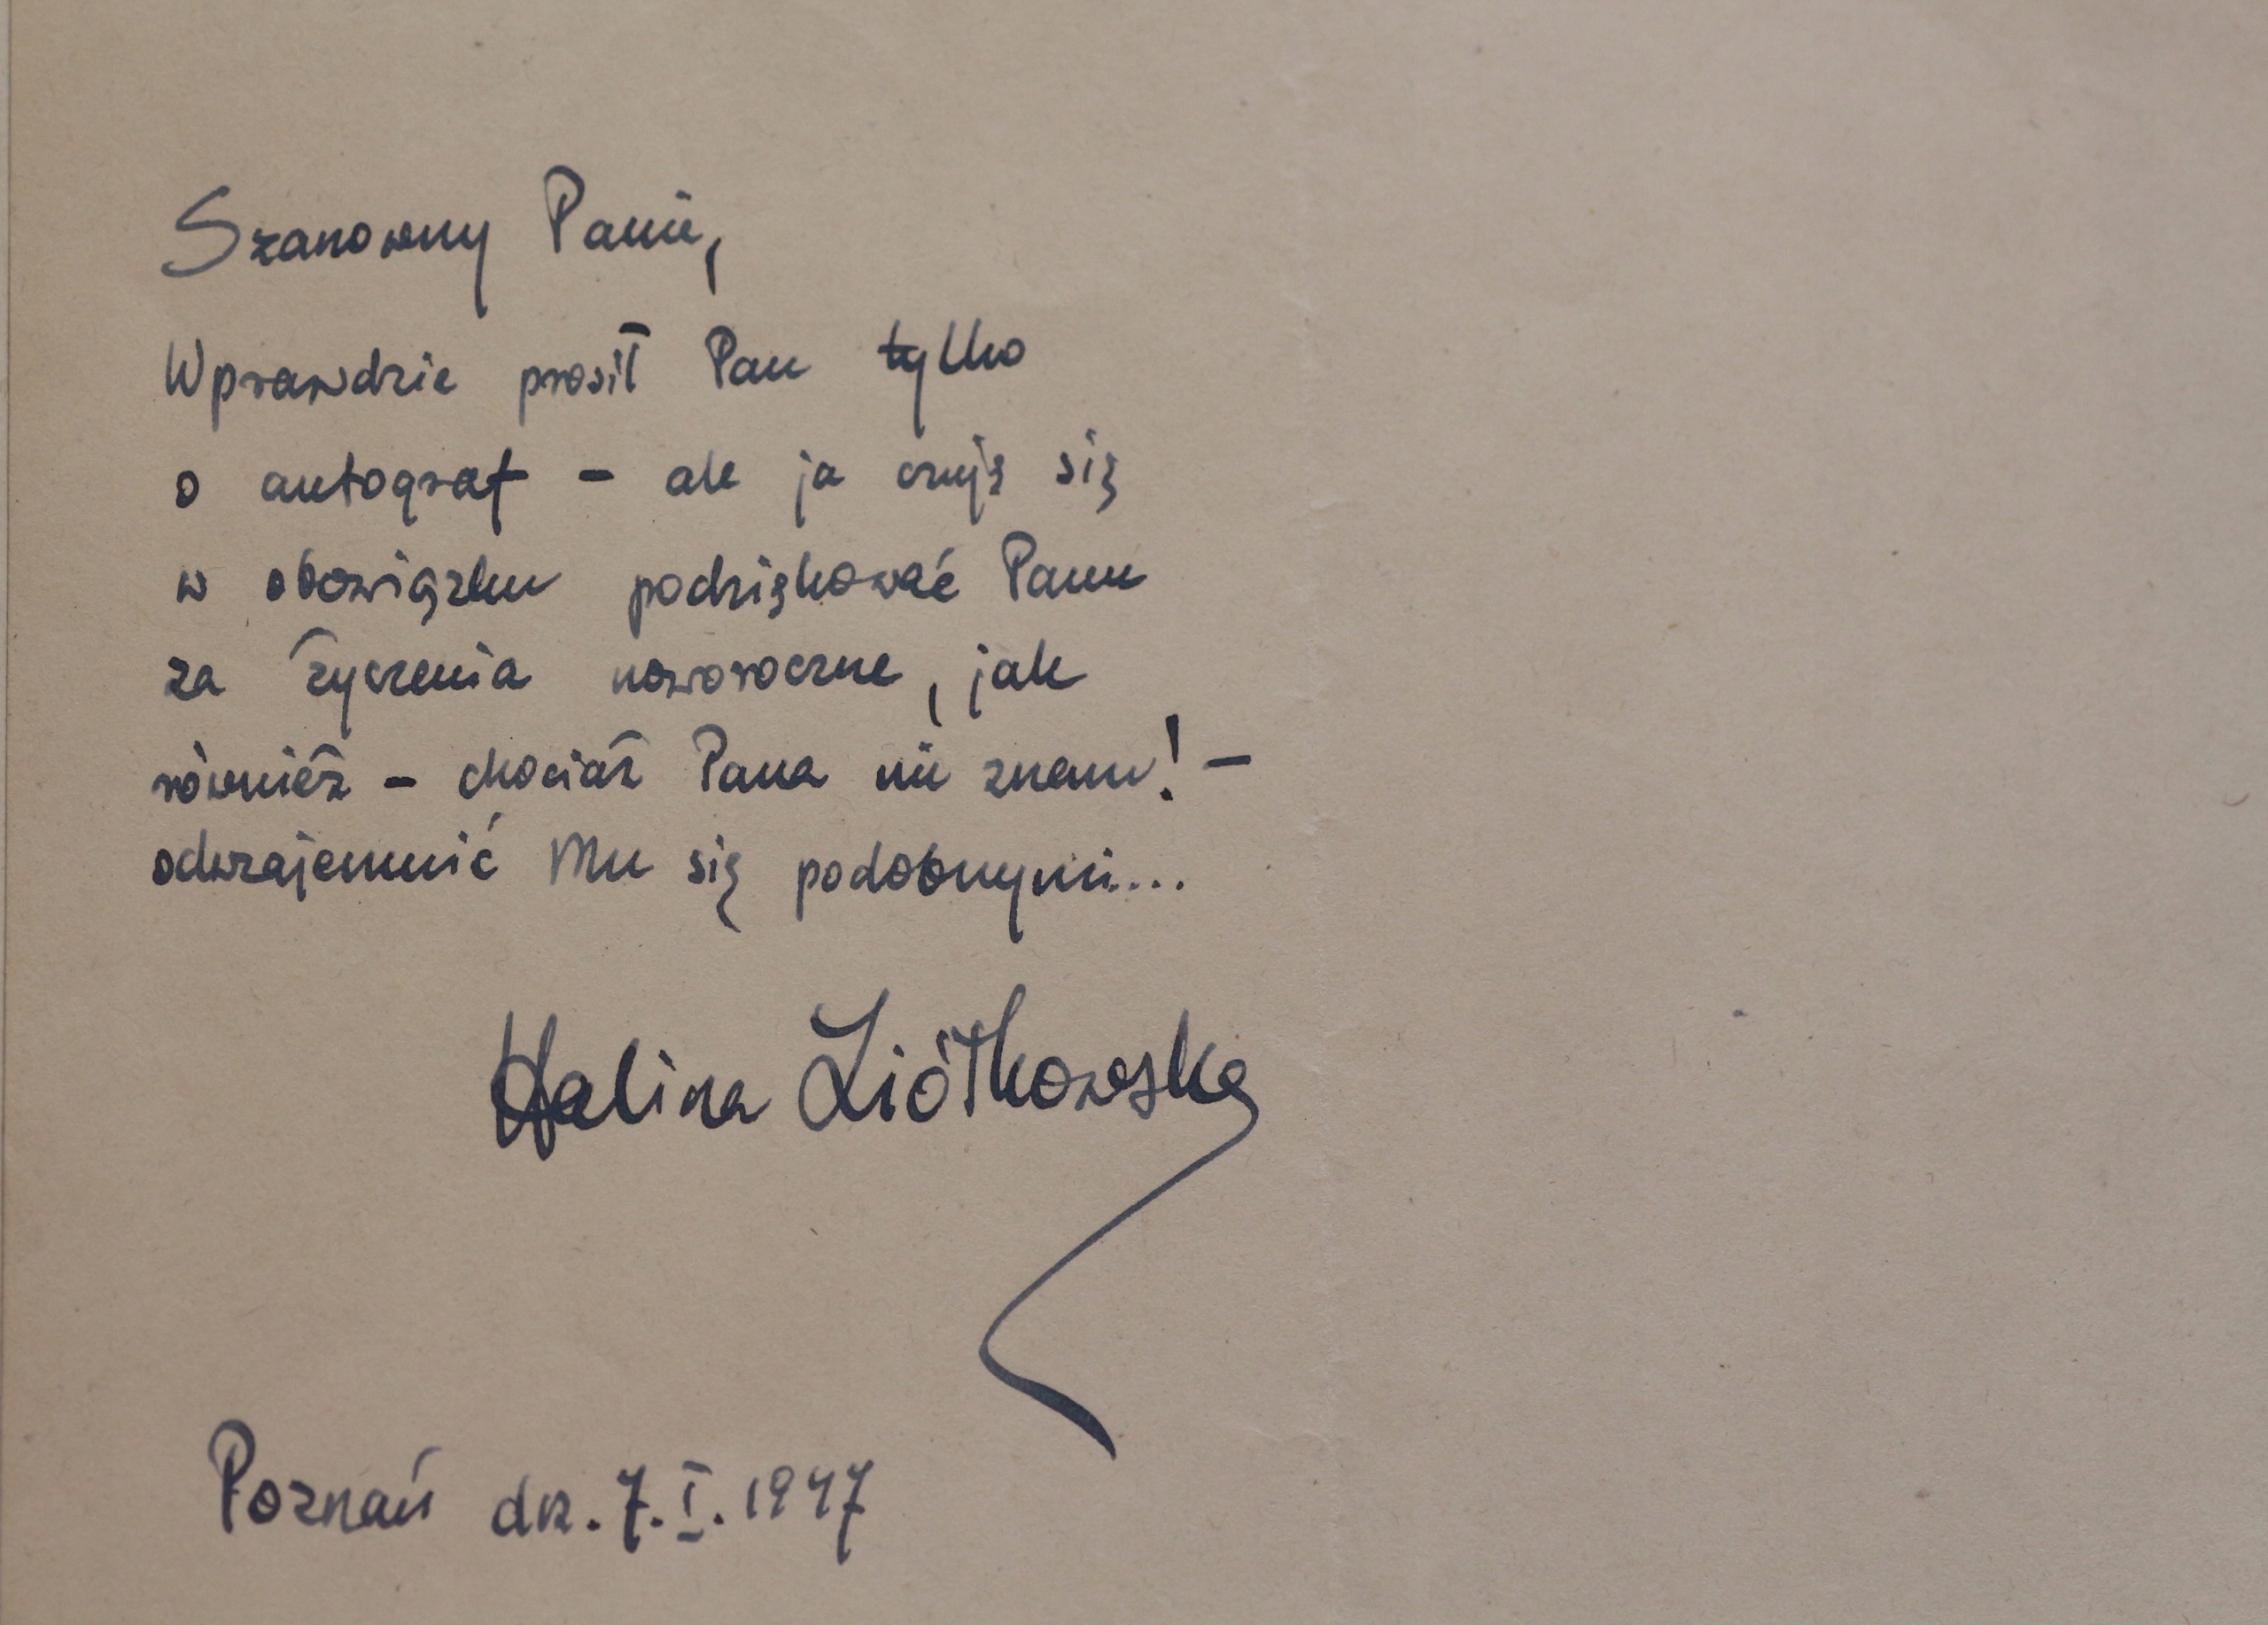 Szanowny Panie,
Wprawdzie prosił Pan tylko
o autograf – ale ja czuję się
w obowiązku podziękować Panu
za życzenia noworoczne, jak
również – chociaż Pana nie znam! –
odwzajemnić Mu się podobnymi....
Halina Ziółkowska
Poznań dn. 7. I. 1947